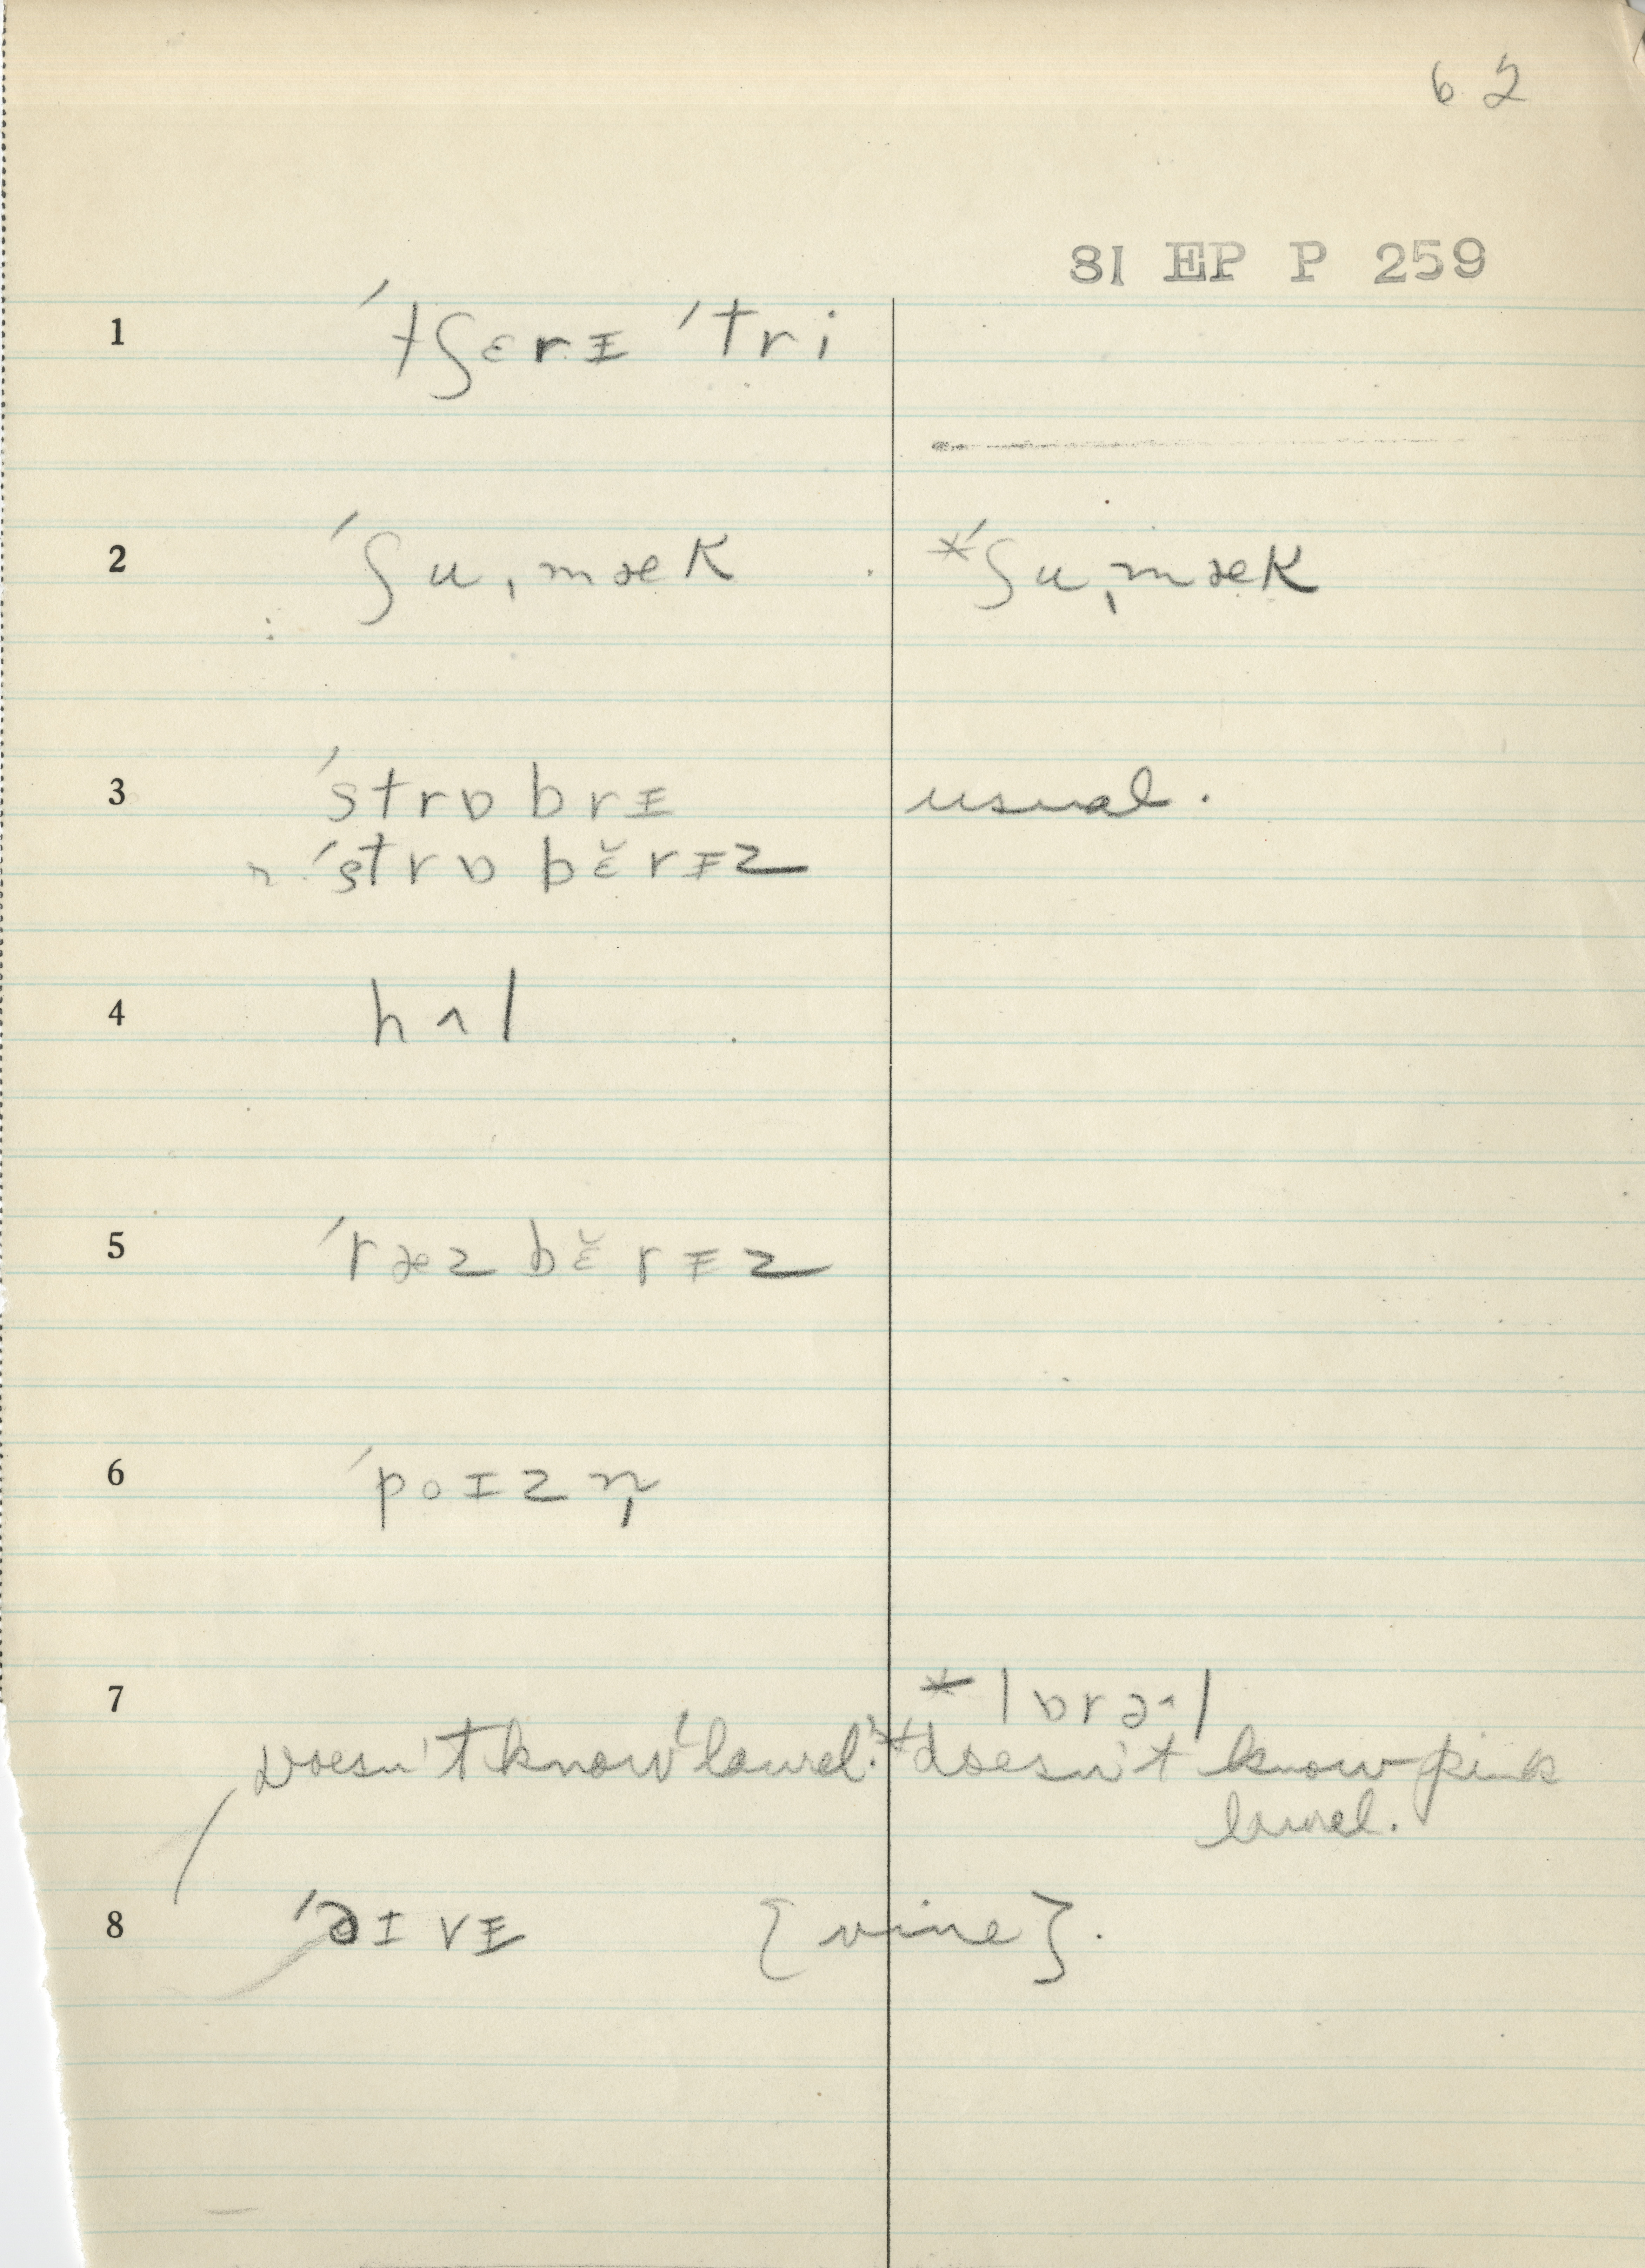 62
81 EP P 259
1 ˈtʃɛrɪ ˈtri
2 ˈʃuˌmæk *ˈʃuˌmæk
3 ˈstrɒbrɪ usual.
ˈstrɒbɛ̆rɪz
4 hʌl
5 ˈræzbɛ̆rɪz
6 ˈpoɪzn̩
7 *lɒrəl
Doesn't know 'laurel.' *doesn't know pink
laurel.
8 ˈaɪvɪ {vine}.